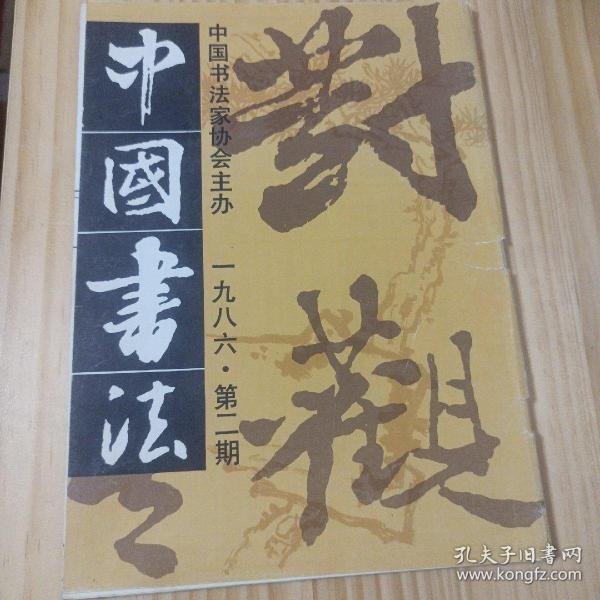 中國書法
中国书法家协会主办
一九八六·第二期
對觀
孔夫子旧书网
www.kongfz.com